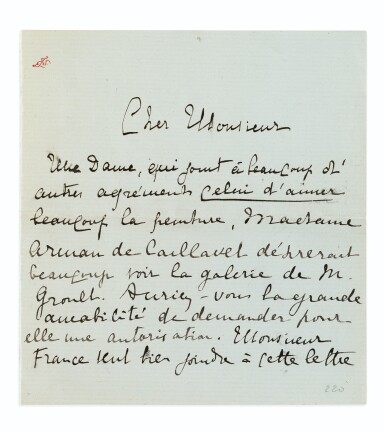 Cher Monsieur
Une Dame, qui joint à beaucoup d'
autres agréments celui d'aimer
beaucoup la peinture, Madame
Arman de Caillavet désirerait
beaucoup voir la galerie de M.
Groult. Auriez-vous la grande
amabilité de demander pour
elle une autorisation. Monsieur
France veut bien joindre à cette lettre
220